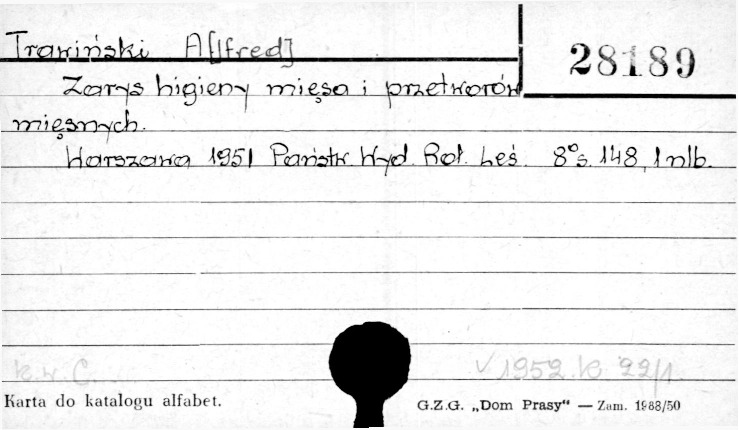 Trawiński A[lfred]
28189
Zarys higieny mięsa i przetworów
mięsnych.
Warszawa 1951 Państw. Wyd. Roł. Leś. 8° s. 148, 1 nlb.
k.w. C.
√ 1952. K 22/1.
Karta do katalogu alfabet.
G.Z.G. „Dom Prasy“ — Zam. 1988/50